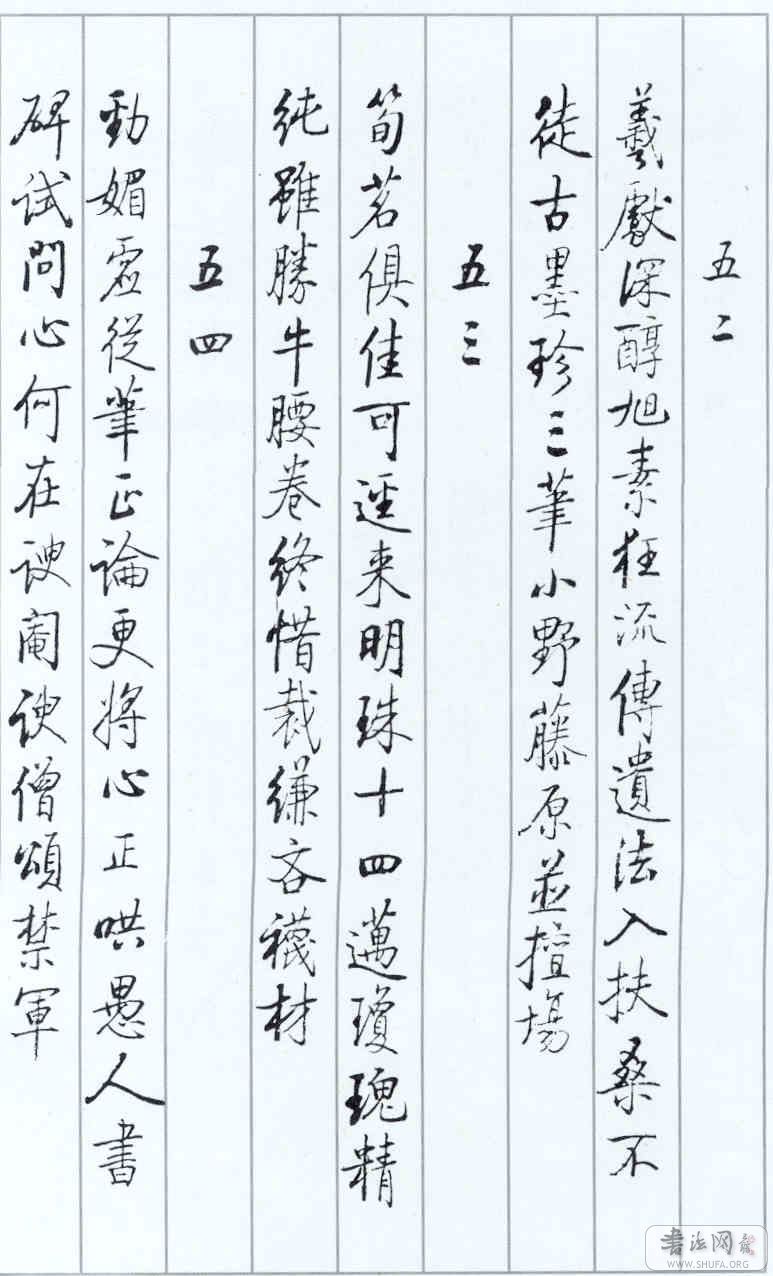 五二
羲獻深醇旭素狂流傳遺法入扶桑不
徒古墨珍三筆小野藤原並擅場
五三
筍茗俱佳可逕来明珠十四邁瓊瑰精
純雖勝牛腰卷終惜裁縑吝襪材
五四
勁媚虛從筆正論更將心正哄愚人書
碑試問心何在諛閹諛僧頌禁軍
書法网
WWW.SHUFA.ORG